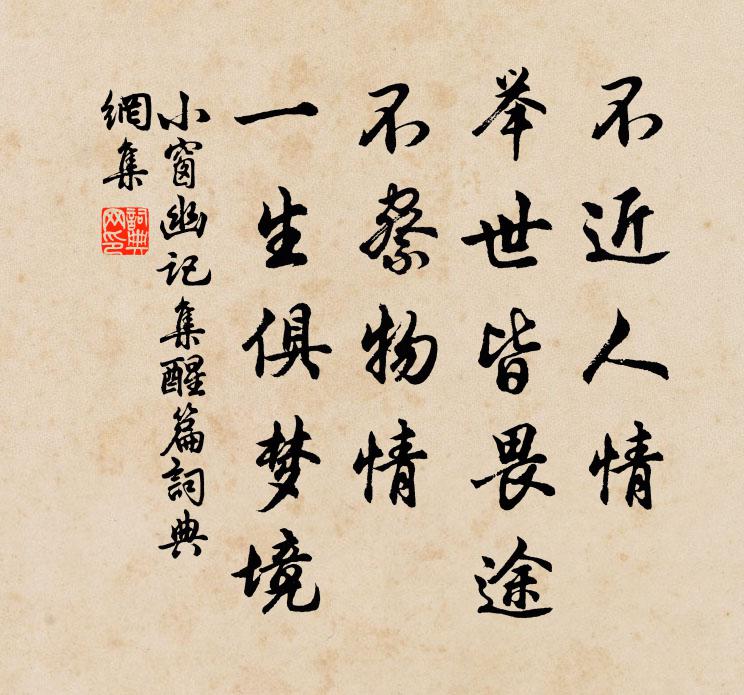 不近人情
举世皆畏途
不察物情
一生俱梦境
小窗幽记集醒篇詞典
網集
詞典
网印